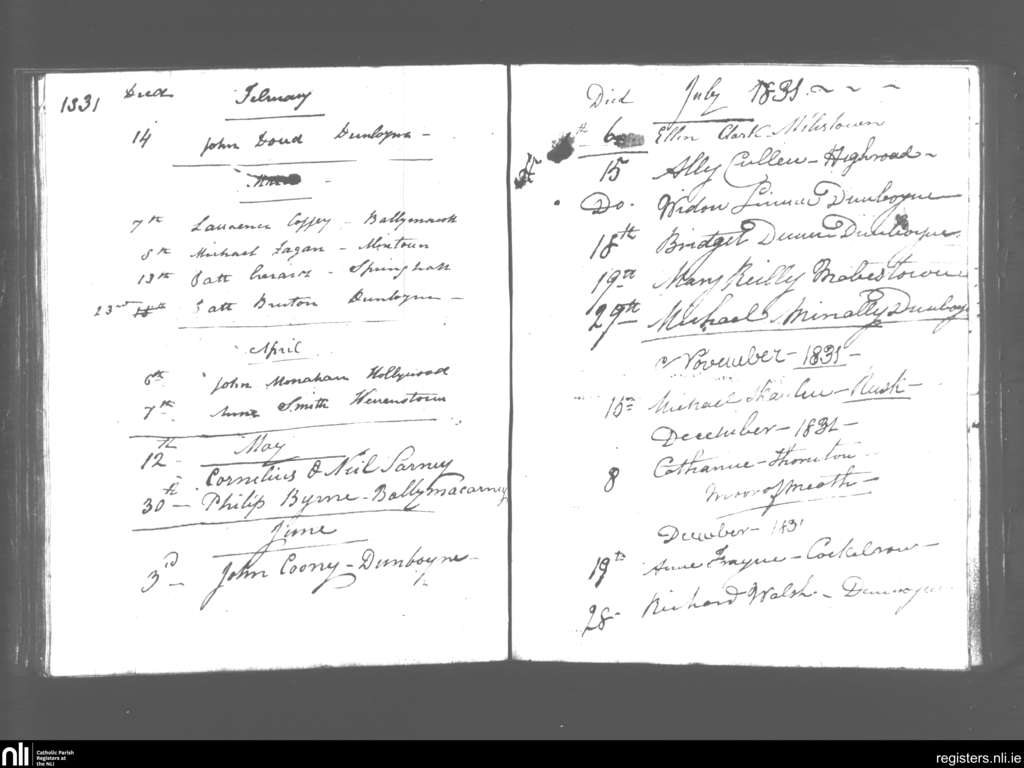 1831 Died February
14 John Doud Dunboyne -
7th Laurence Coffey - Ballymacoll
8th Michael Fagan -
13th Patt - Spring
23rd Patt Bruton Dunboyne -
April
6th John Monahan Hollywood
7th Anne Smith
May
12th Cornelius O Neil Sarney
30th - Philip Byrne - Ballymacarney
June
3d - John Coony - Dunboyne -
Died July 1831 - ~ -
6 Ellin Clark Milestown
15 Ally Cullen - Highroad -
Do. Widow Dunboyne
18th Bridget Dunne Dunboyne
19th Mary Reilly Mabestown
29th Michael Dunboyne
November - 1831 -
15 Michael - Rush -
December - 1831 -
8 Catharine - Thornton
Moor of Meath -
December - 1831
19th Anne Frayne - Cockelrow -
28 - Richard Walsh - Dunboyne
nli Catholic Parish
Registers at
the NLI
registers.nli.ie